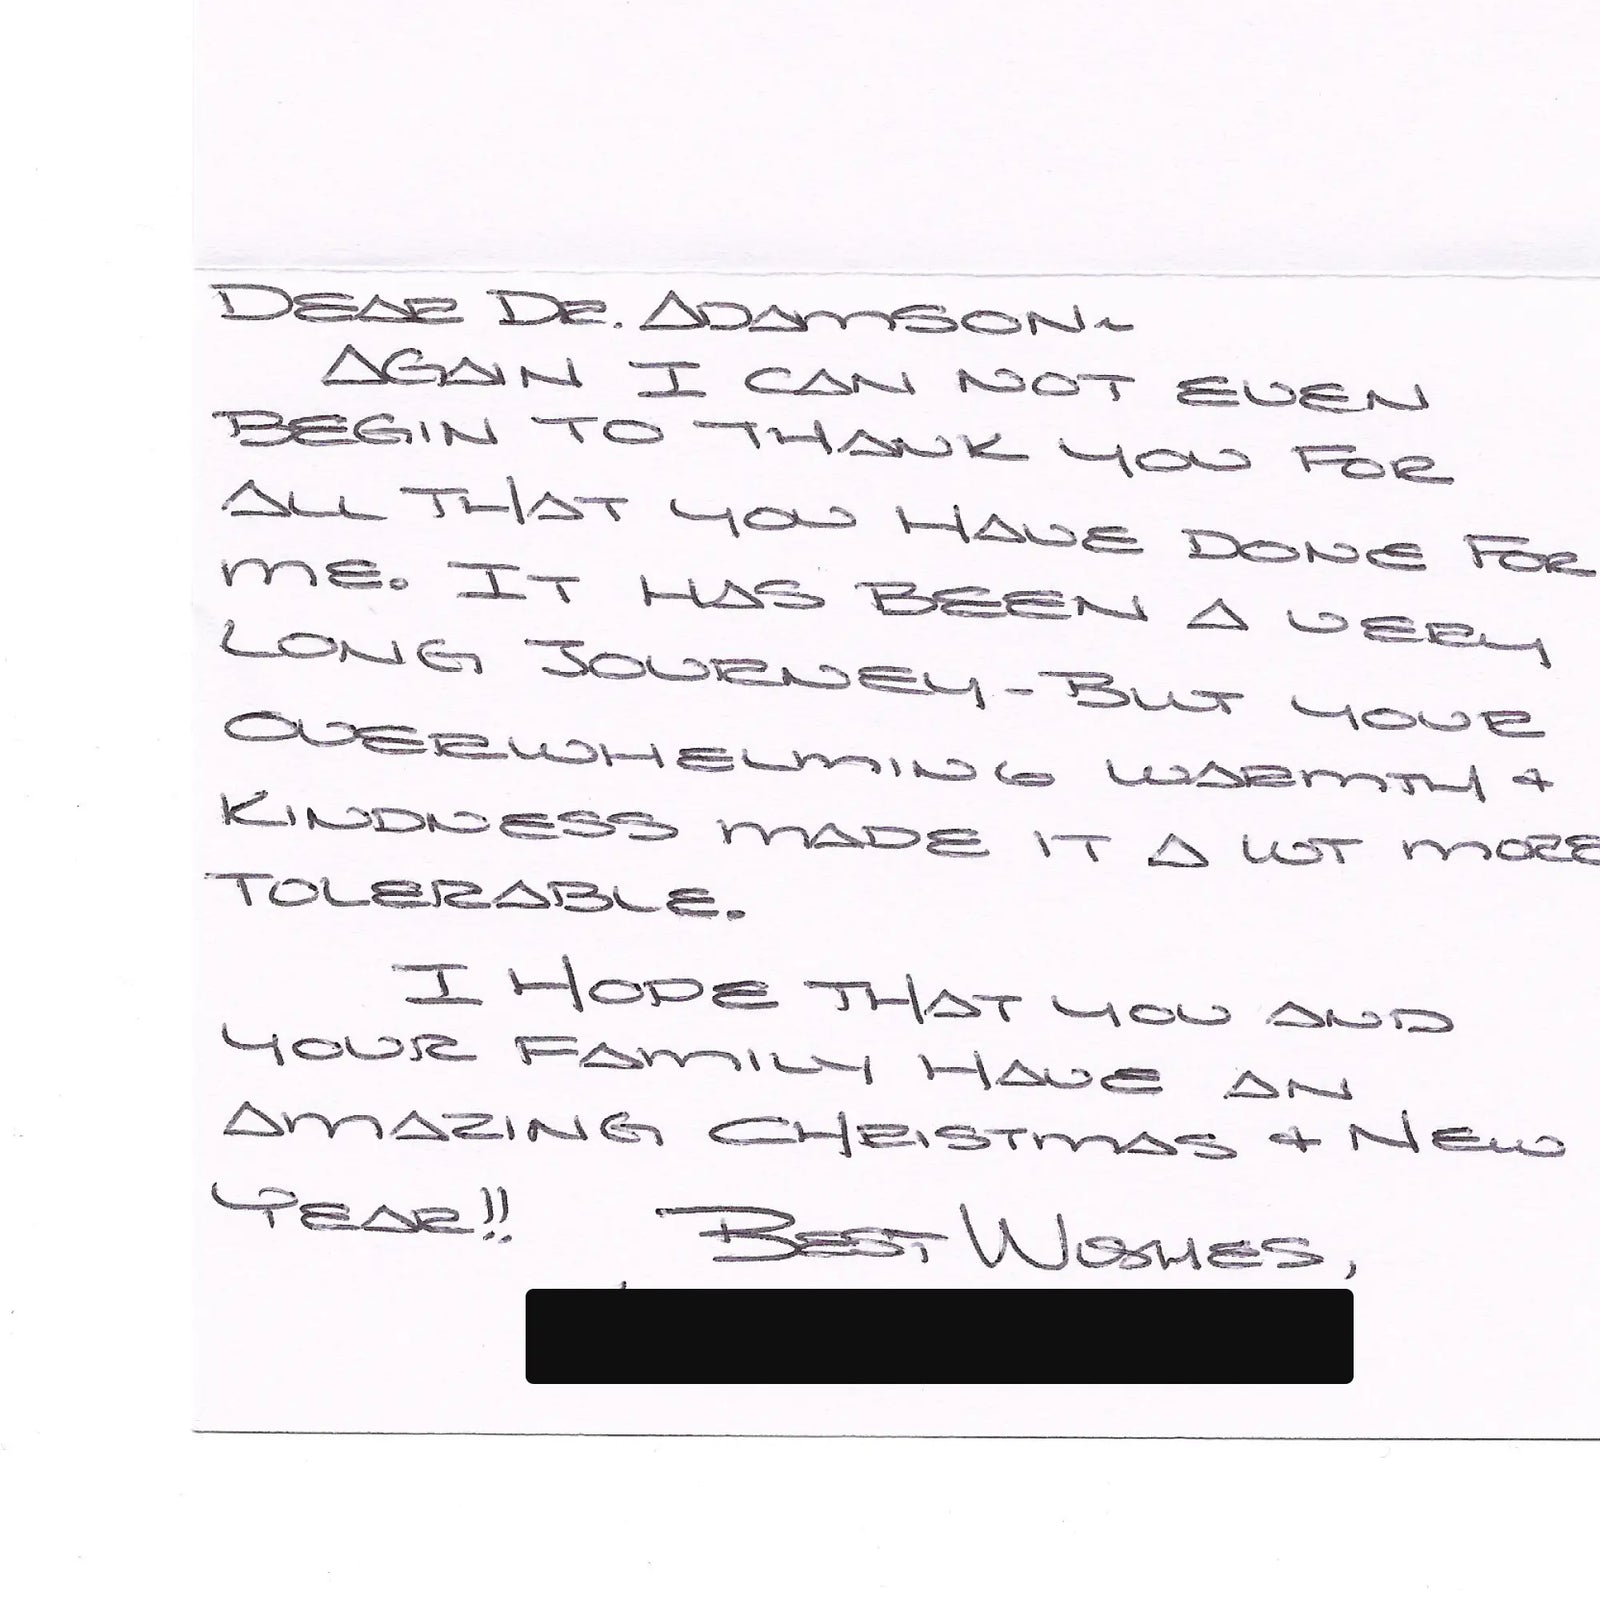 DEAR DR. ADAMSON~
AGAIN I CAN NOT EVEN
BEGIN TO THANK YOU FOR
ALL THAT YOU HAVE DONE FOR
ME. IT HAS BEEN A VERY
LONG JOURNEY - BUT YOUR
OVERWHELMING WARMTH +
KINDNESS MADE IT A LOT MORE
TOLERABLE.
I HOPE THAT YOU AND
YOUR FAMILY HAVE AN
AMAZING CHRISTMAS + NEW
YEAR!! BEST WISHES,